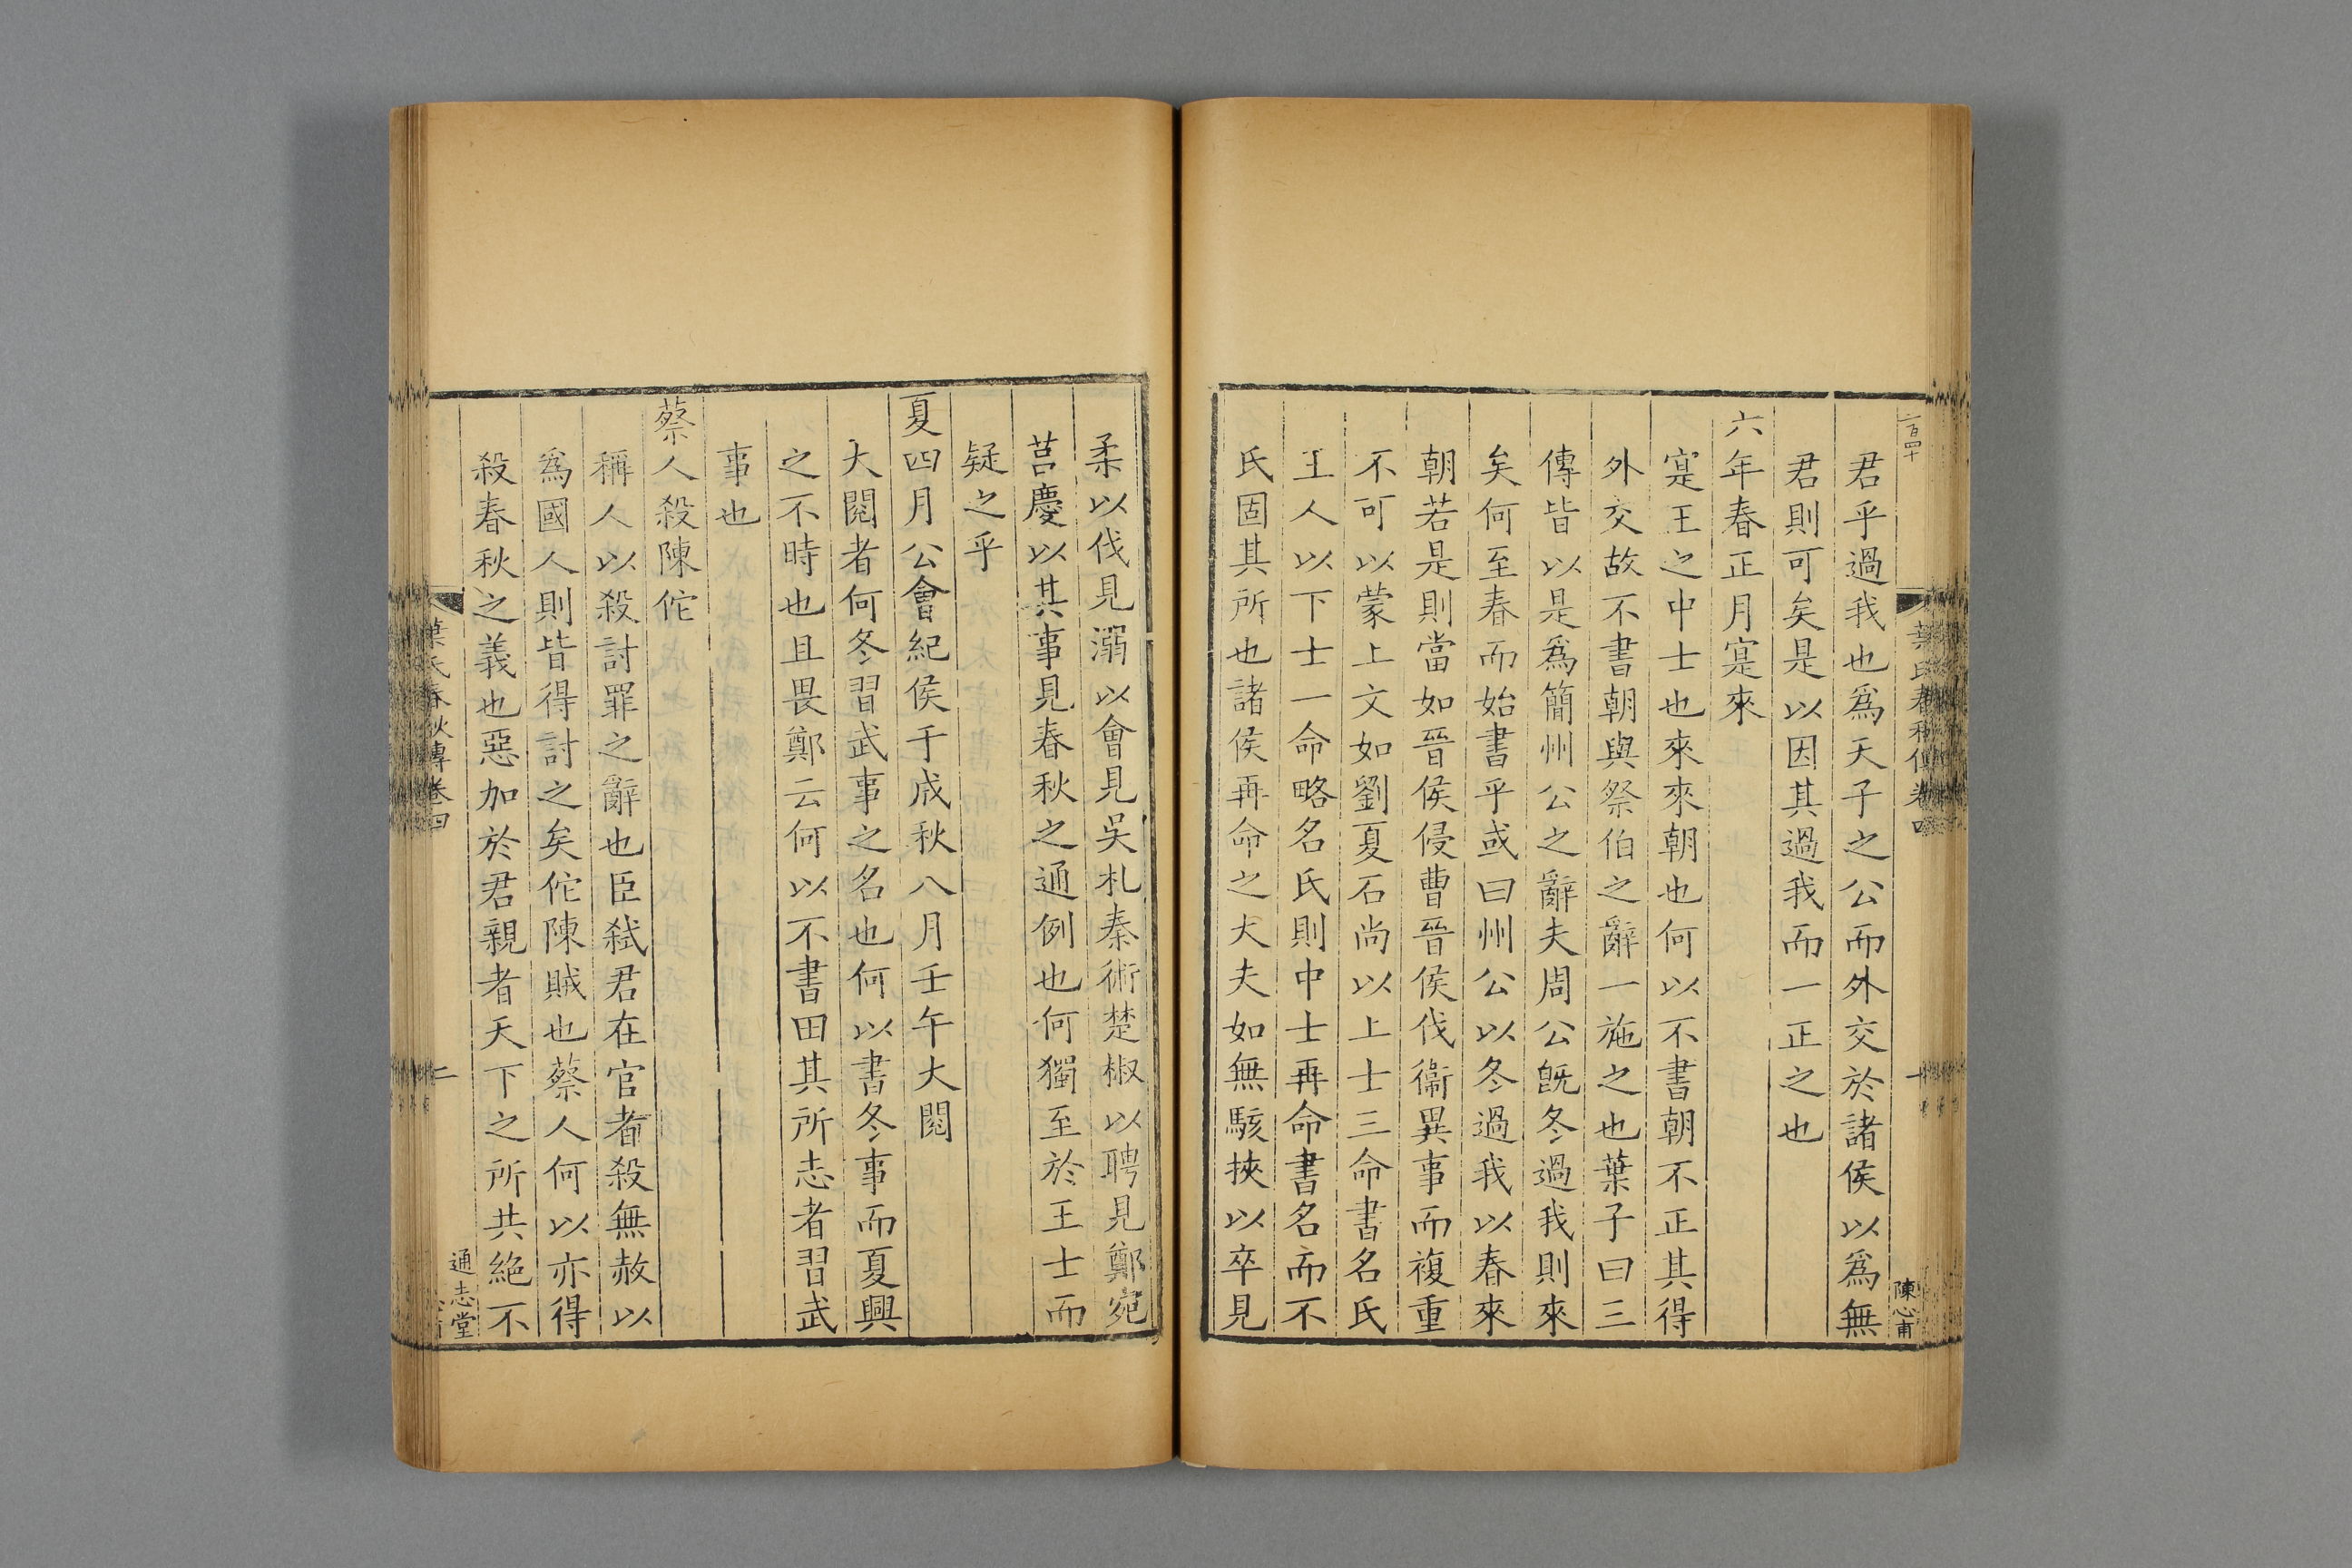 君乎過我也爲天子之公而外交於諸侯以爲無
君則可矣是以因其過我而一正之也
六年春正月寔來
寔王之中士也來來朝也何以不書朝不正其得
外交故不書朝與祭伯之辭一施之也葉子曰三
傳皆以是爲簡州公之辭夫周公旣冬過我則來
矣何至春而始書乎或曰州公以冬過我以春來
朝若是則當如晉侯侵曹晉侯伐衞異事而複重
不可以蒙上文如劉夏石尚以上士三命書名氏
王人以下士一命略名氏則中士再命書名而不
氏固其所也諸侯再命之大夫如無駭挾以卒見
陳心甫
柔以伐見溺以會見吳札秦術楚椒以聘見鄭宛
莒慶以其事見春秋之通例也何獨至於王士而
疑之乎
夏四月公會紀侯于成秋八月壬午大閱
大閱者何冬習武事之名也何以書冬事而夏興
之不時也且畏鄭云何以不書田其所志者習武
事也
蔡人殺陳佗
稱人以殺討罪之辭也臣弒君在官者殺無赦以
爲國人則皆得討之矣佗陳賊也蔡人何以亦得
殺春秋之義也惡加於君親者天下之所共絕不
葉氏春秋傳卷四
二
通志堂